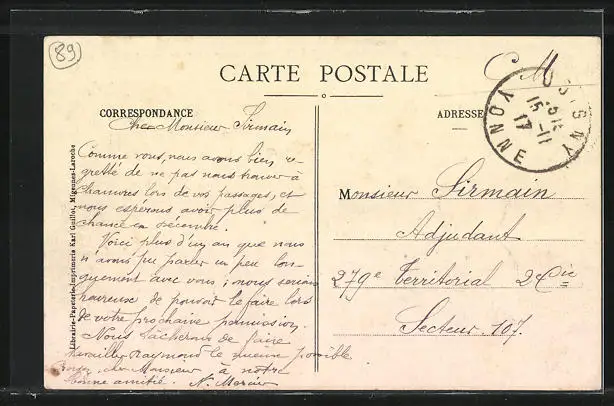 89
CARTE POSTALE
C M
CORRESPONDANCE
ADRESSE
YONNE
15-11
17
Cher Monsieur Sirmain
Comme vous, nous avons bien re-
gretté de ne pas nous trouver à
Chamvres lors de vos passages, et
nous espérons avoir plus de
chance en décembre.
Voici plus d'un an que nous
n'avons pu parler un peu lon-
guement avec vous ; nous serions
heureux de pouvoir le faire lors
de votre prochaine permission.
Nous tâcherons de faire
travailler Raymond le mieux possible
cher Monsieur à notre
bonne amitié. N. Mercier
Monsieur Sirmain
Adjudant
279e Territorial 2e Cie
Secteur 107.
Librairie-Papeterie-Imprimerie Karl Guillot, Migennes-Laroche